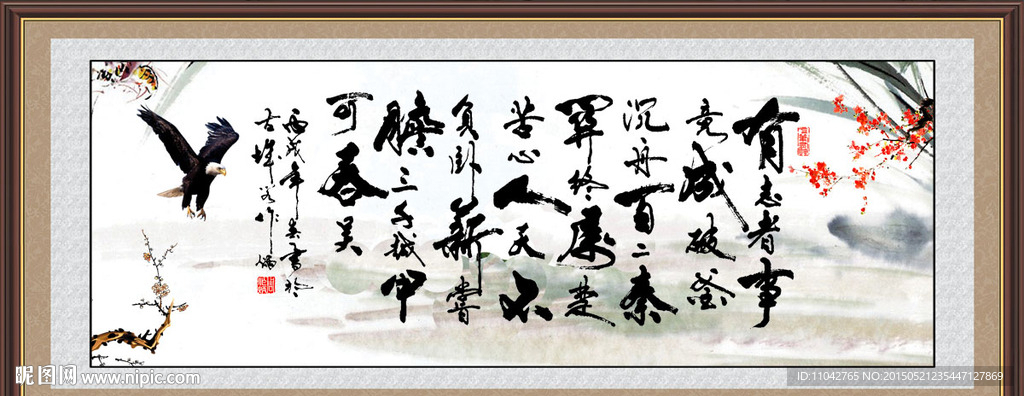 有志者事
竟成破釜
沉舟百二秦
關終屬楚
苦心人天不
負卧薪嘗
膽三千越甲
可吞吴
丙戌年書於
昵图网 www.nipic.com
ID:11042765 NO:20150521235447127869